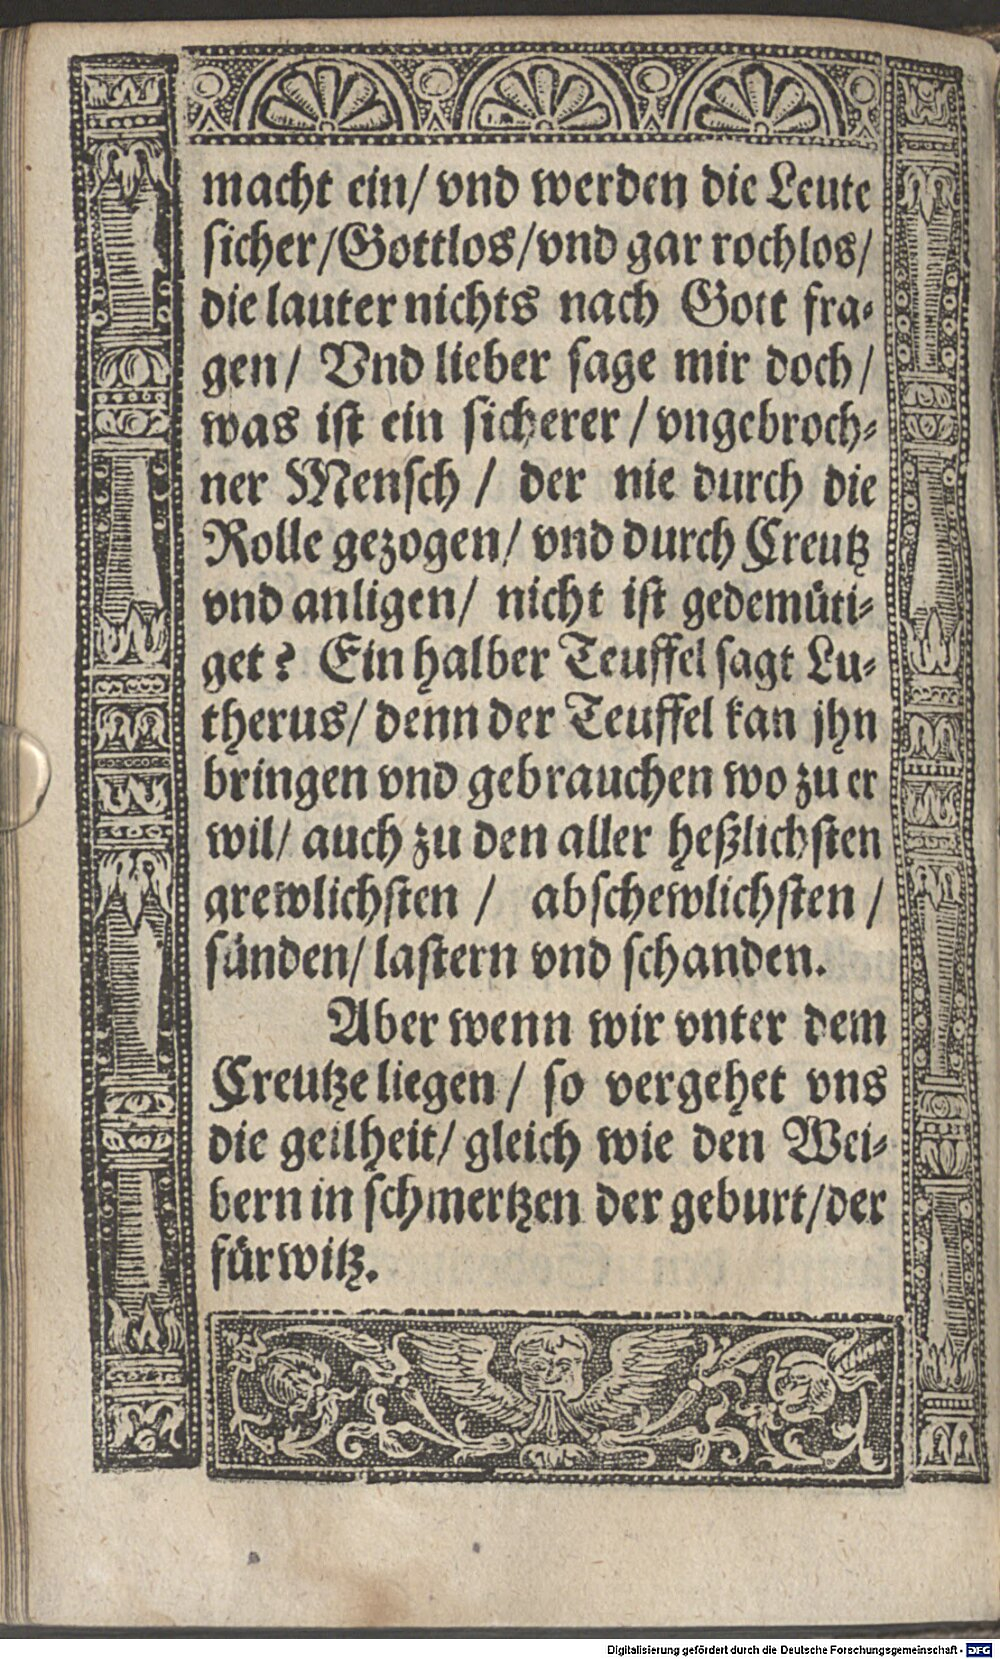 macht ein/ vnd werden die Leute
sicher/Gottlos/vnd gar rochlos/
die lauter nichts nach Gott fra⸗
gen/ Vnd lieber sage mir doch/
was ist ein sicherer/ vngebroch⸗
ner Mensch / der nie durch die
Rolle gezogen/ vnd durch Creutz
vnd anligen/ nicht ist gedemüti⸗
get? Ein halber Teuffel sagt Lu⸗
therus/ denn der Teuffel kan jhn
bringen vnd gebrauchen wo zu er
wil/ auch zu den aller heßlichsten
grewlichsten / abschewlichsten /
sünden/ lastern vnd schanden.
Aber wenn wir vnter dem
Creutze liegen / so vergehet vns
die geilheit/ gleich wie den Wei⸗
bern in schmertzen der geburt/der
fürwitz.
Digitalisierung gefördert durch die Deutsche Forschungsgemeinschaft - DFG